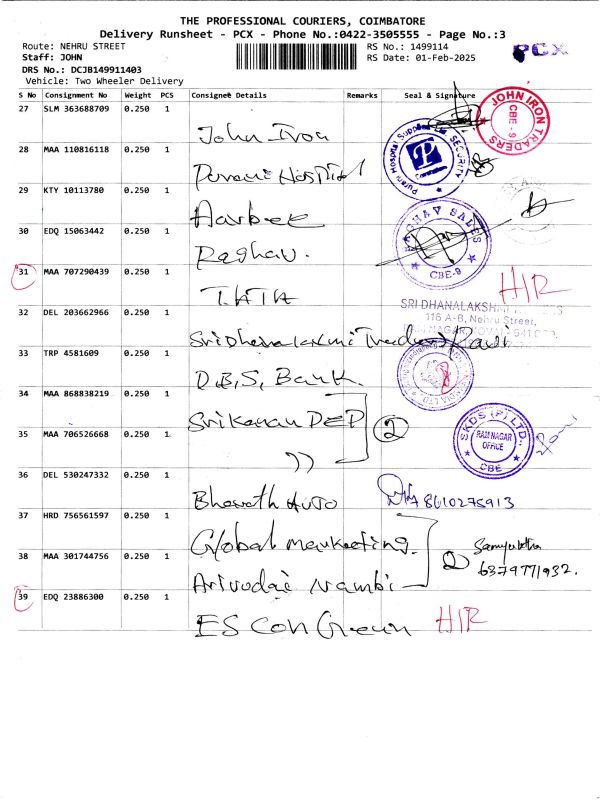 THE PROFESSIONAL COURIERS, COIMBATORE
Delivery Runsheet - PCX - Phone No.:0422-3505555 - Page No.:3
Route: NEHRU STREET
RS No.: 1499114
PCX
Staff: JOHN
RS Date: 01-Feb-2025
DRS No.: DCJB149911403
Vehicle: Two Wheeler Delivery
S No Consignment No Weight PCS Consignee Details Remarks Seal & Signature
27 SLM 363688709 0.250 1 John Iron
JOHN IRON TRADERS CBE-9
28 MAA 110816118 0.250 1 Purani Hospital
SECURITY
29 KTY 10113780 0.250 1 Aarbee
30 EDQ 15063442 0.250 1 Raghav.
RAGHAV SALES CBE-9
31 MAA 707290439 0.250 1 TATA H/R
32 DEL 203662966 0.250 1
SRI DHANALAKSHMI
116 A-B, Nehru Street,
33 TRP 4581609 0.250 1 D.B.S, Bank.
34 MAA 868838219 0.250 1 DEP 2
35 MAA 706526668 0.250 1 ))
SKDS (P) LTD., RAM NAGAR OFFICE CBE
36 DEL 530247332 0.250 1 Bharath Auto 8610275913
37 HRD 756561597 0.250 1 Global Marketing.
2 Samyuktha
6379771932.
38 MAA 301744756 0.250 1 Arivudai Nambi
39 EDQ 23886300 0.250 1 ES Con Green H/R